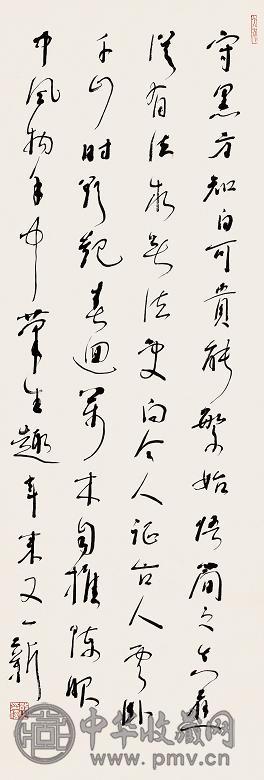 守黑方知白可貴能繁始悟簡之真應
從有法求無法更向今人证古人雲卧
千山时春迴萬木自推陳眼
中風物手中筆生趣年来又一新
中华收藏网
www.pmv.cn